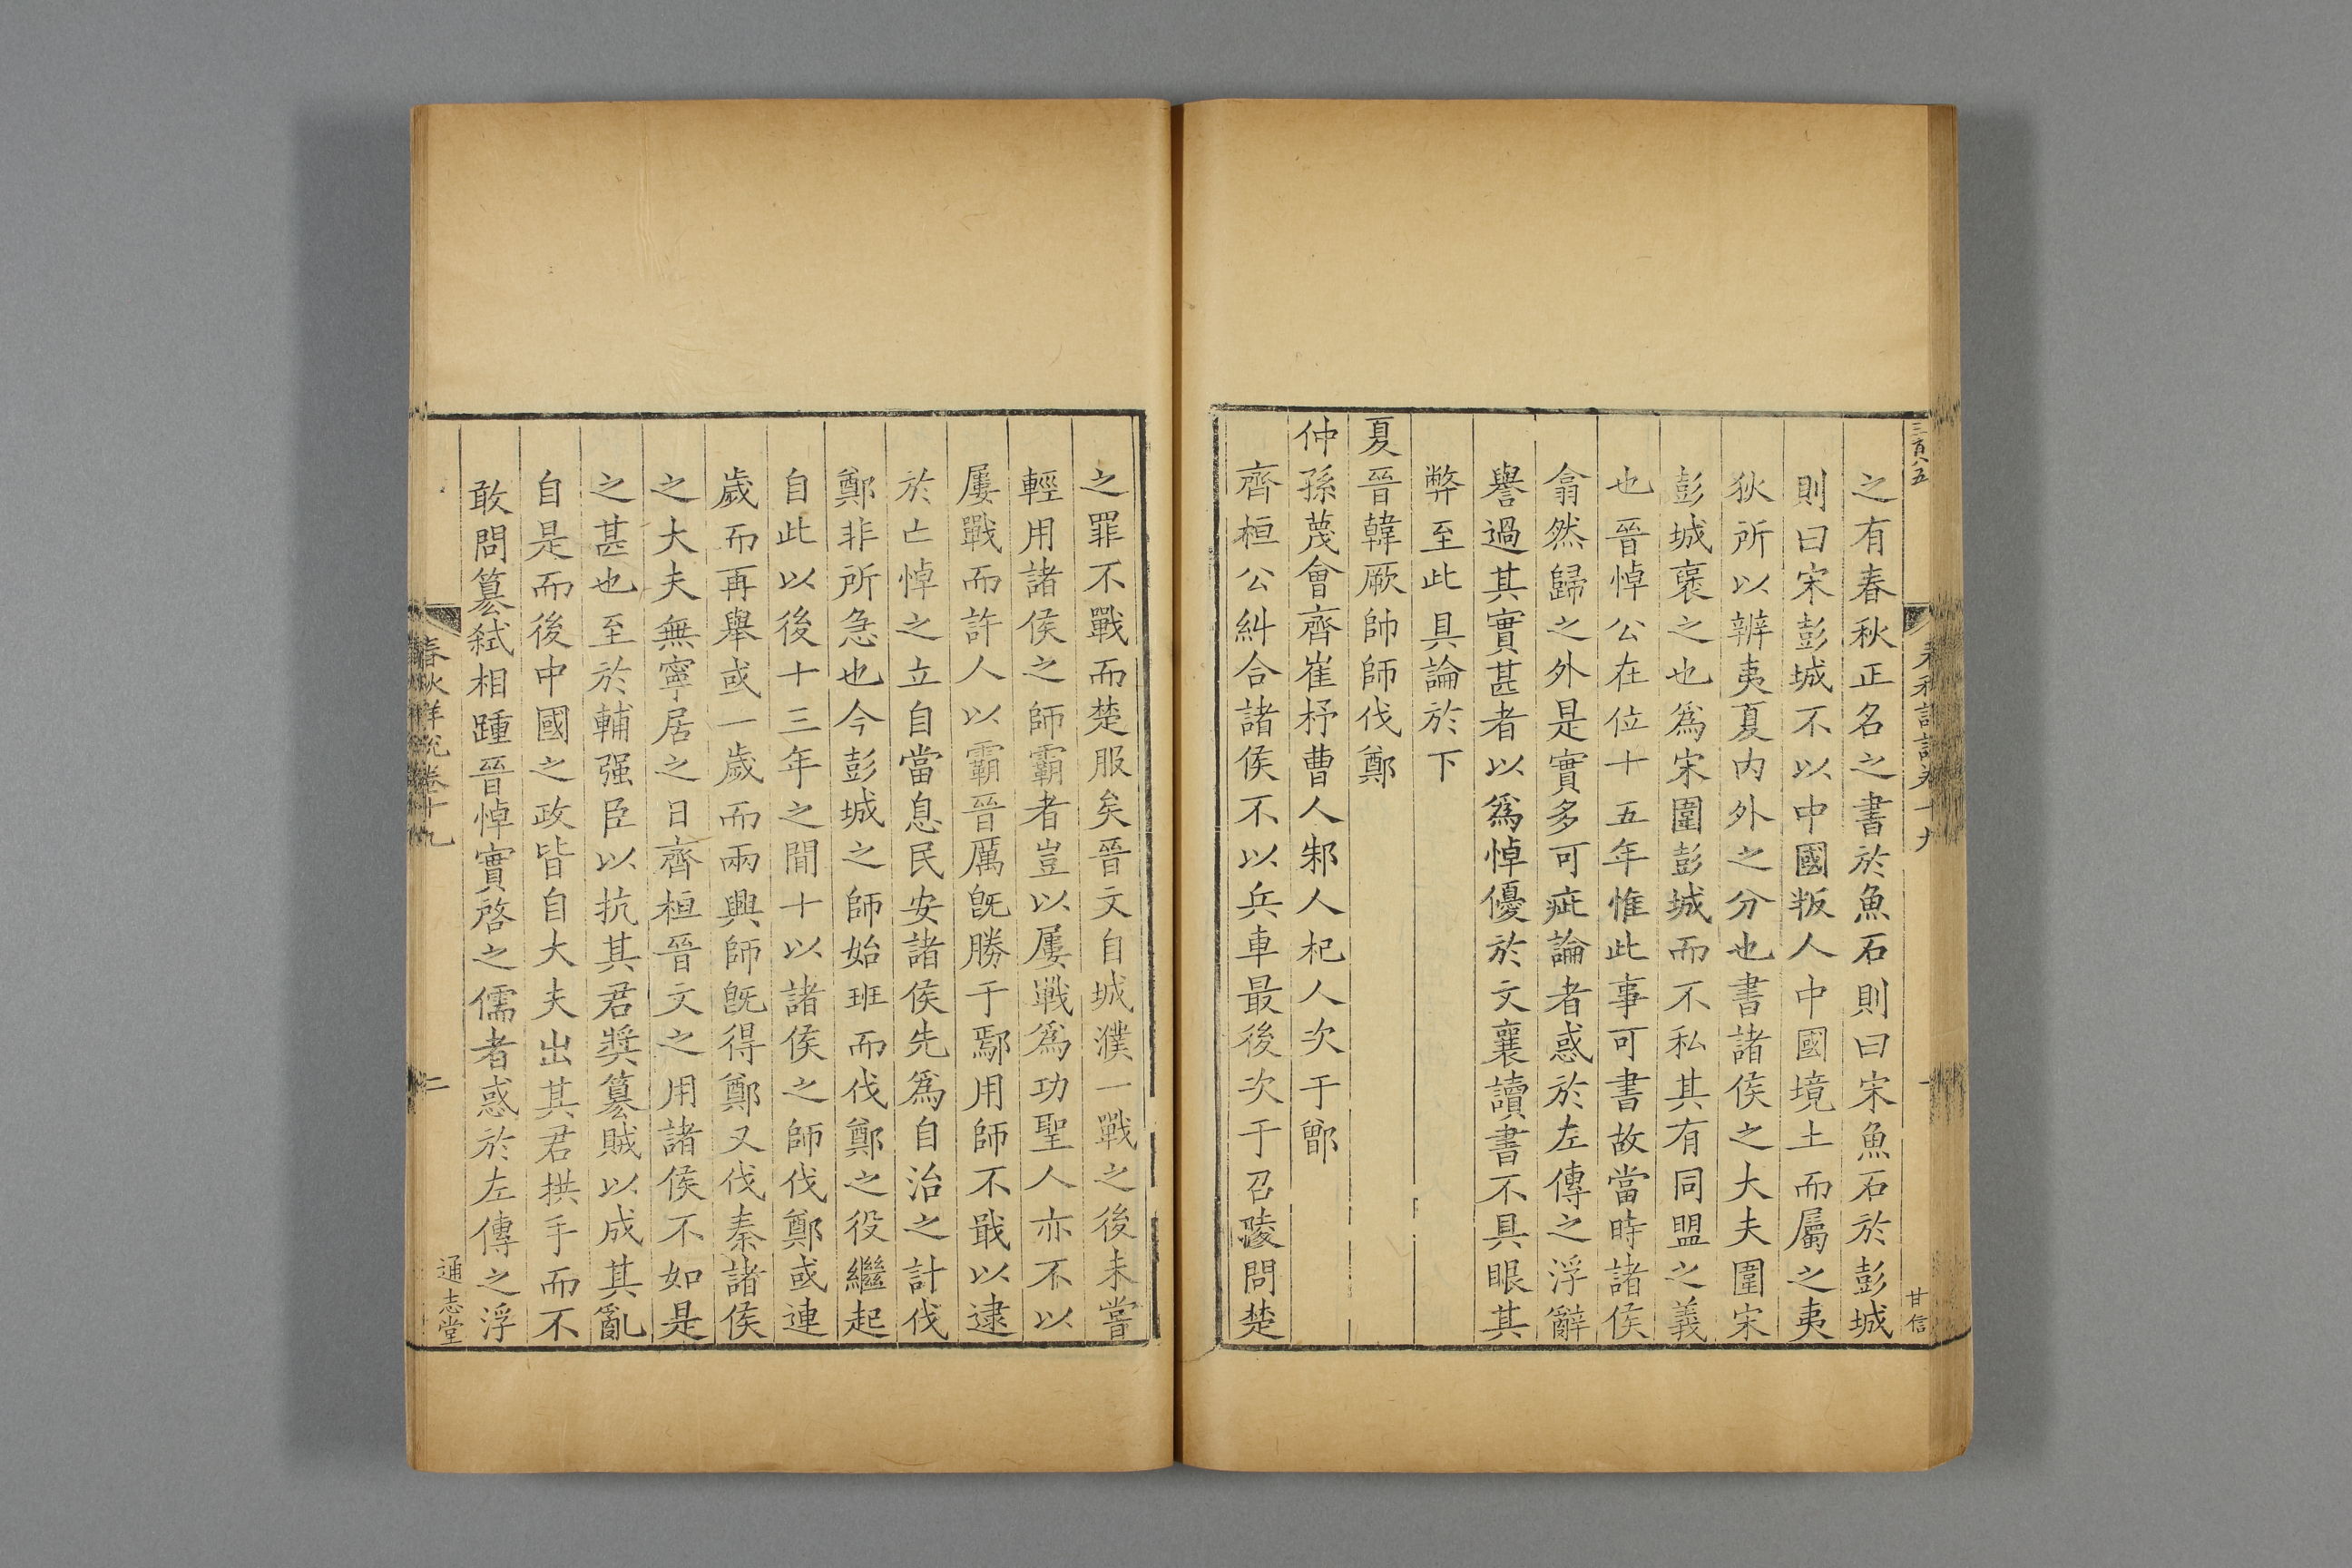 三百八五
之有春秋正名之書於魚石則曰宋魚石於彭城
則曰宋彭城不以中國叛人中國境土而屬之夷
狄所以辨夷夏内外之分也書諸侯之大夫圍宋
彭城褒之也爲宋圍彭城而不私其有同盟之義
也晉悼公在位十五年惟此事可書故當時諸侯
翕然歸之外是實多可疵論者惑於左傳之浮辭
譽過其實甚者以爲悼優於文襄讀書不具眼其
弊至此具論於下
夏晉韓厥帥師伐鄭
仲孫蔑會齊崔杼曹人邾人杞人次于鄫
齊桓公糾合諸侯不以兵車最後次于召陵問楚
甘信
之罪不戰而楚服矣晉文自城濮一戰之後未嘗
輕用諸侯之師霸者豈以屢戦爲功聖人亦不以
屢戰而許人以霸晉厲旣勝于鄢用師不戢以逮
於亡悼之立自當息民安諸侯先爲自治之計伐
鄭非所急也今彭城之師始班而伐鄭之役繼起
自此以後十三年之間十以諸侯之師伐鄭或連
歲而再舉或一歲而兩興師旣得鄭又伐秦諸侯
之大夫無寧居之日齊桓晉文之用諸侯不如是
之甚也至於輔强臣以抗其君奬篡賊以成其亂
自是而後中國之政皆自大夫出其君拱手而不
敢問篡弑相踵晉悼實啓之儒者惑於左傳之浮
春秋詳説卷十九
二
通志堂